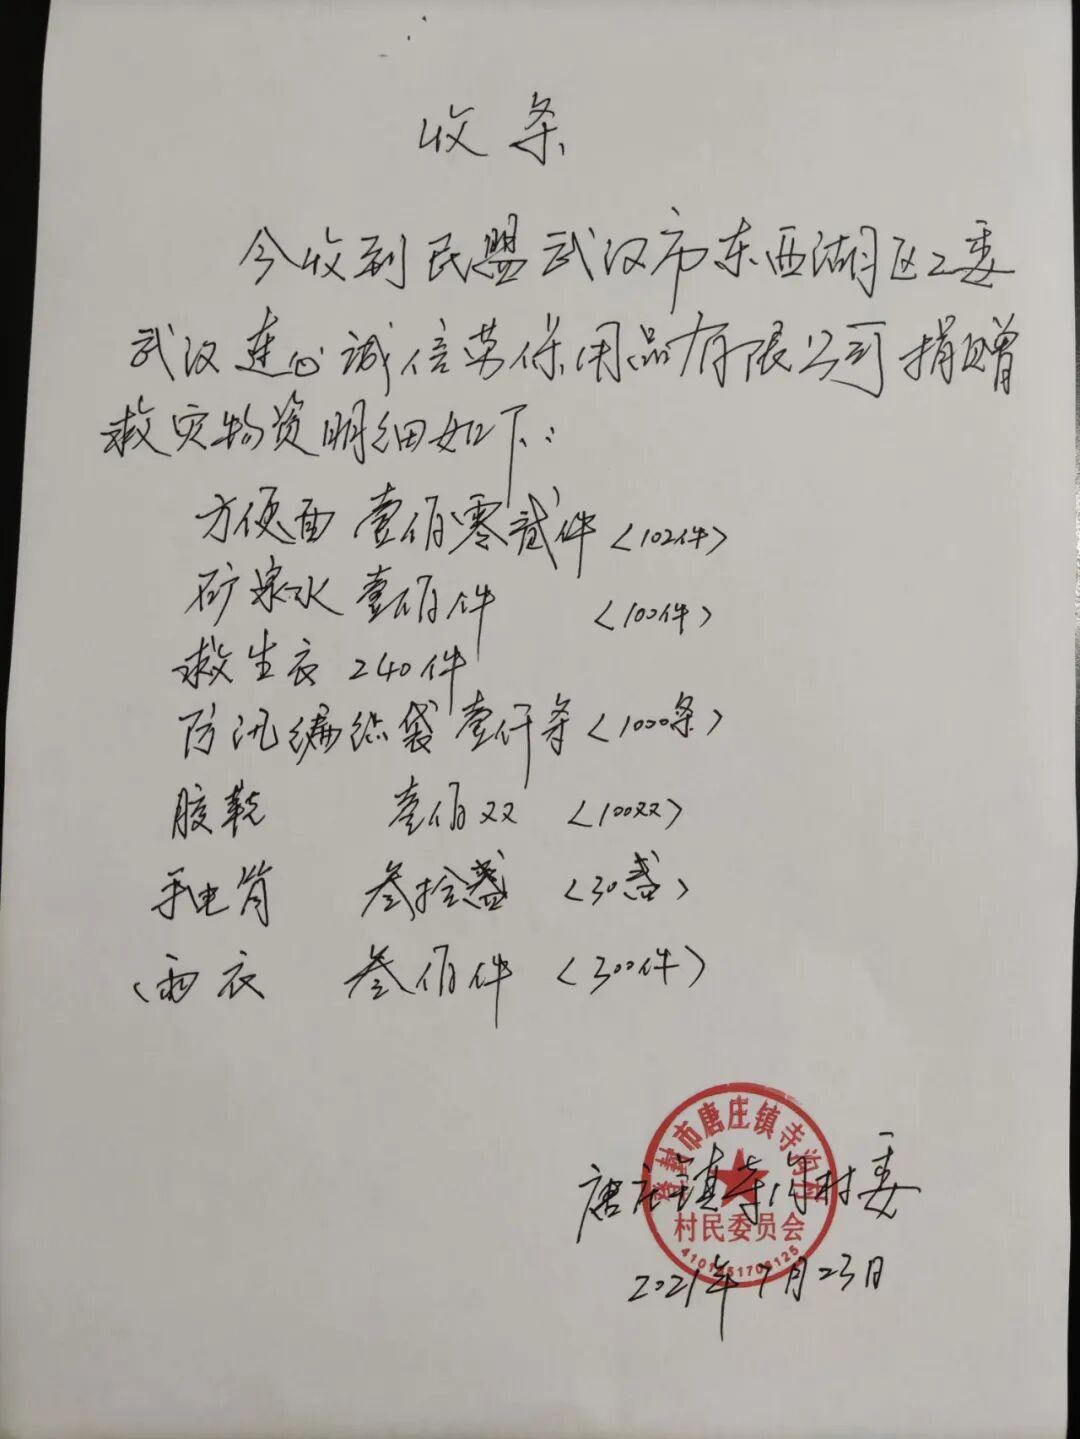 收条
今收到民盟武汉市东西湖区工委
武汉连心诚信劳保用品有限公司捐赠
救灾物资明细如下:
方便面 壹佰零贰件 <102件>
矿泉水 壹佰件 <100件>
救生衣 240件
防汛编织袋 壹仟条 <1000条>
胶鞋 壹佰双 <100双>
手电筒 叁拾盏 <30盏>
雨衣 叁佰件 <300件>
登封市唐庄镇寺沟村
唐庄镇寺沟村委
村民委员会
2021年7月23日